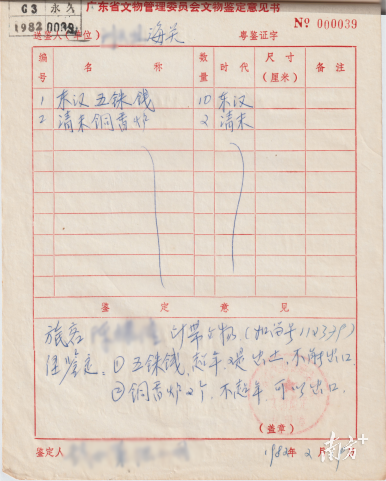 G3 永久
1982 0039
广东省文物管理委员会文物鉴定意见书
送鉴人(单位) 海关
粤鉴证字
№ 000039
编号 名称 数量 时代 尺寸(厘米) 备注
1 东汉五铢钱 10 东汉
2 清末铜香炉 2 清末
鉴定意见
旅客 计带文物
经鉴定,①五铢钱,超年,又是出土,不准出口
②铜香炉2个,不超年 可以出口.
(盖章)
鉴定人
1982年2月
南方+